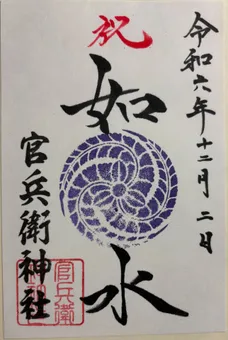 令和六年十二月二日
祝
如水
官兵衛神社
官兵衛
神社